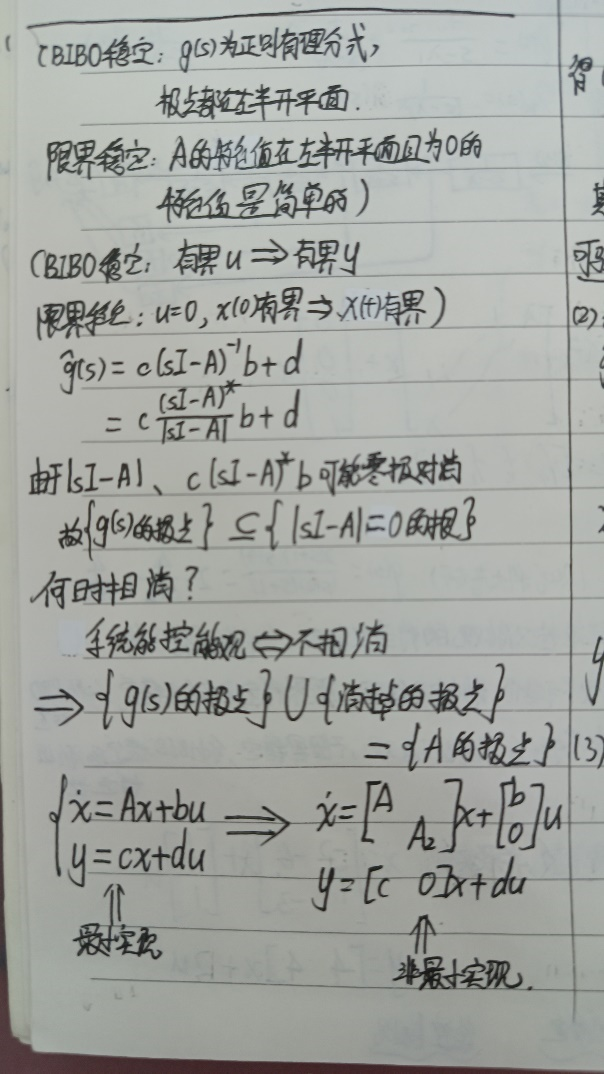 (BIBO稳定: g(s)为正则有理分式,
极点都在左半开平面.
限界稳定: A的特征值在左半开平面且为0的
特征值是简单的)
(BIBO稳定: 有界u⇒有界y
限界稳定: u=0, x(0)有界⇒x(t)有界)
ĝ(s) = c(sI-A)⁻¹b+d
= c (sI-A)*/|sI-A| b+d
由于|sI-A|、c(sI-A)*b可能零极对消
故{g(s)的极点}⊆{|sI-A|=0的根}
何时相消?
系统能控能观⇔不相消
⇒{g(s)的极点}∪{消掉的极点}
={A的极点}
{ẋ=Ax+bu ⇒ ẋ=[A A₂]x+[b 0]u
y=cx+du y=[c 0]x+du
⇑ ⇑
最小实现 非最小实现.
得
可
(2)
y
(3)